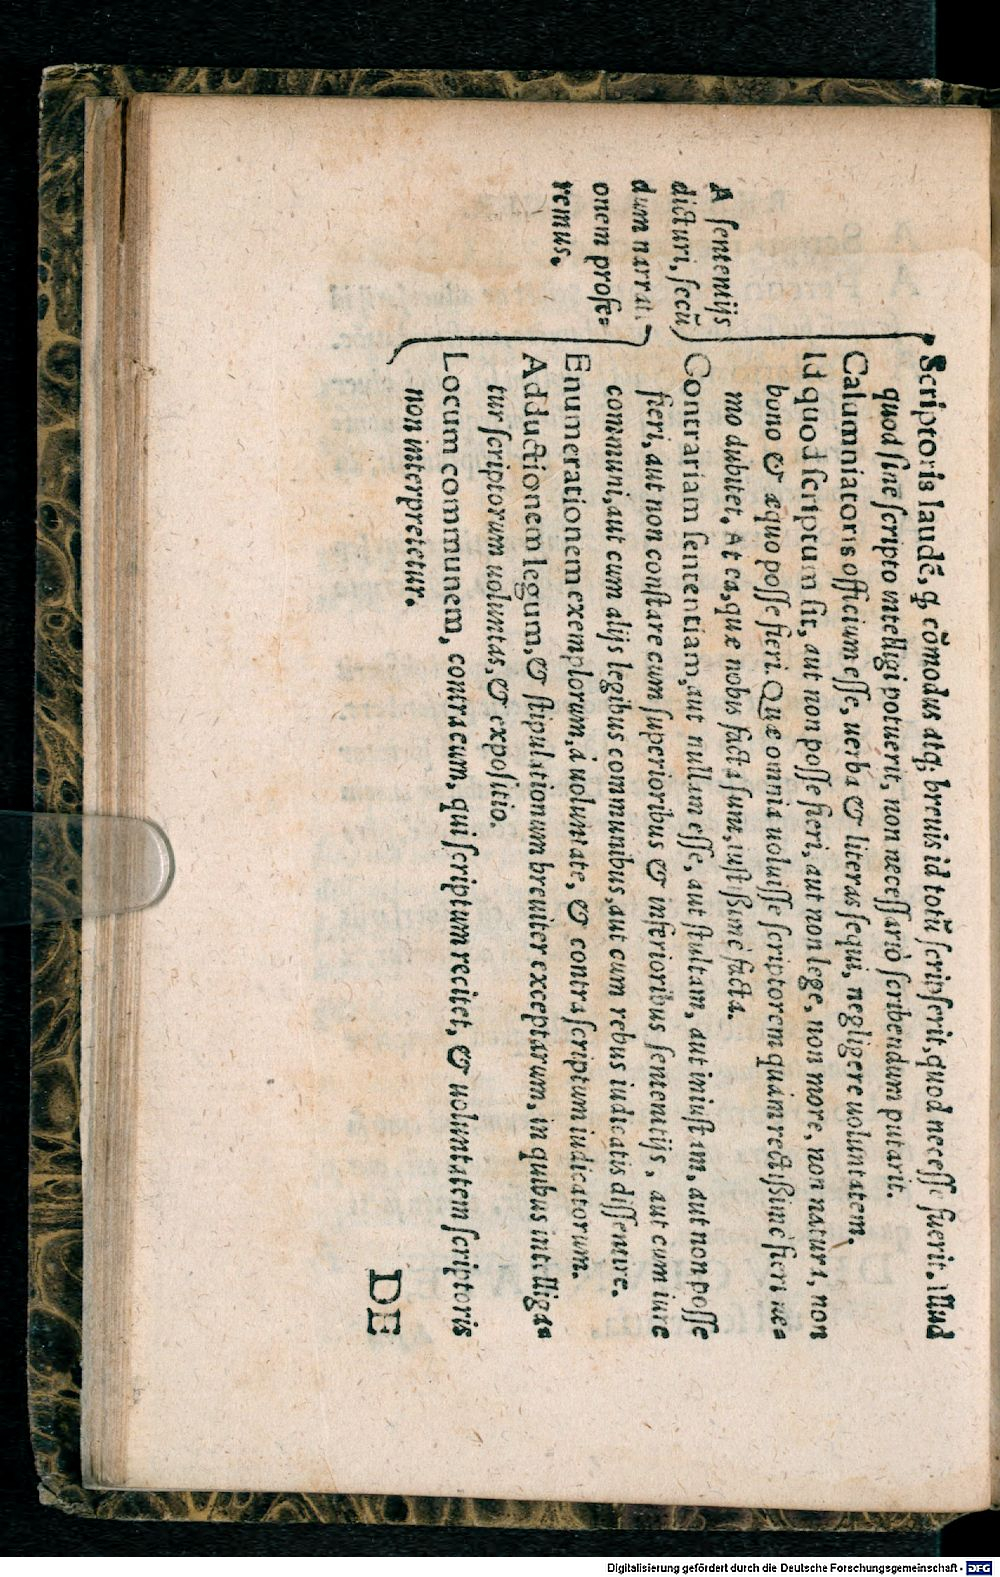 A sententijs
dicturi, secũ
dum narrati
onem profe=
remus.
Scriptoris laudẽ, ꝙ cõmodus atq; breuis id totũ scripserit, quod necesse fuerit. Illud
quod sine scripto intelligi potuerit, non necessariò scribendum putarit.
Calumniatoris officium esse, uerba & literas sequi, negligere uoluntatem.
Id quod scriptum sit, aut non posse fieri, aut non lege, non more, non natura, non
bono & æquo posse fieri. Quæ omnia uoluisse scriptorem quàm rectissimè fieri ne=
mo dubitet. At ea, quæ nobis facta sunt, iustissimè facta.
Contrariam sententiam, aut nullam esse, aut stultam, aut iniustam, aut non posse
fieri, aut non constare cum superioribus & inferioribus sententijs, aut cum iure
communi, aut cum alijs legibus communibus, aut cum rebus iudicatis dissentire.
Enumerationem exemplorum, à uoluntate, & contra scriptum iudicatorum.
Adductionem legum, & stipulationum breuiter exceptarum, in quibus intelliga=
tur scriptorum uoluntas, & expositio.
Locum communem, contra eum, qui scriptum recitet, & uoluntatem scriptoris
non interpretetur.
DE
Digitalisierung gefördert durch die Deutsche Forschungsgemeinschaft - DFG